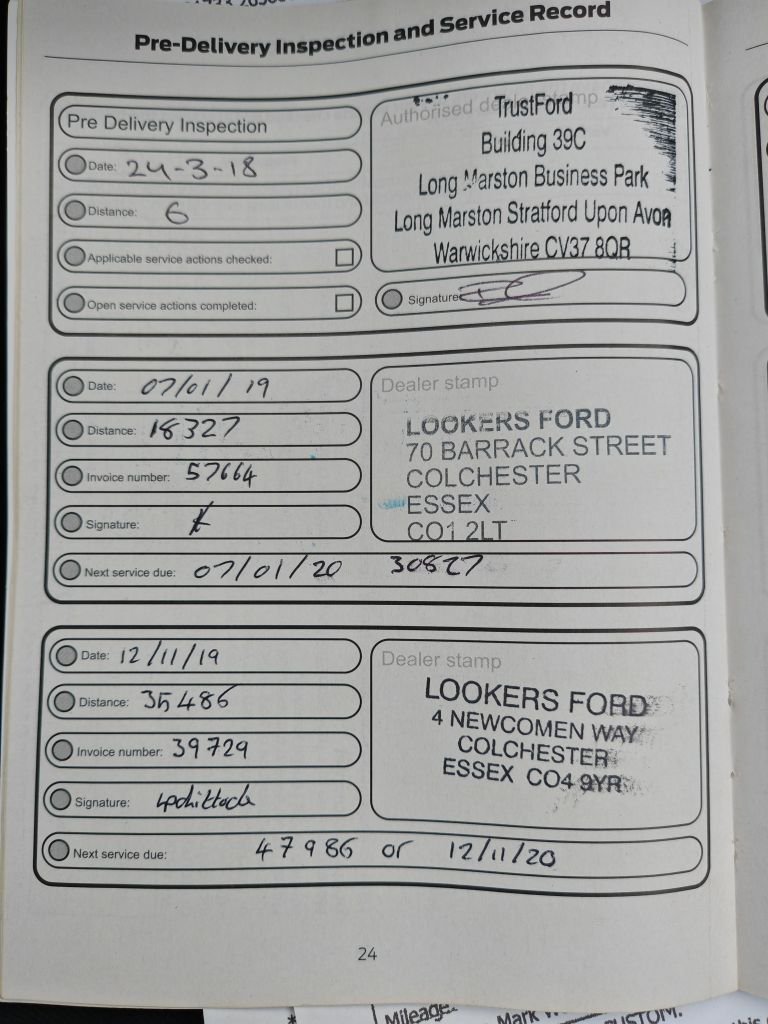 Pre-Delivery Inspection and Service Record
Pre Delivery Inspection
Date: 24-3-18
Distance: 6
Applicable service actions checked:
Open service actions completed:
Authorised dealer stamp
TrustFord
Building 39C
Long Marston Business Park
Long Marston Stratford Upon Avon
Warwickshire CV37 8QR
Signature
Date: 07/01/19
Distance: 18327
Invoice number: 57664
Signature:
Next service due: 07/01/20 30827
Dealer stamp
LOOKERS FORD
70 BARRACK STREET
COLCHESTER
ESSEX
CO1 2LT
Date: 12/11/19
Distance: 35486
Invoice number: 39729
Signature:
Next service due: 47986 or 12/11/20
Dealer stamp
LOOKERS FORD
4 NEWCOMEN WAY
COLCHESTER
ESSEX CO4 9YR
24
Mileage:
Mark
CUSTOM.